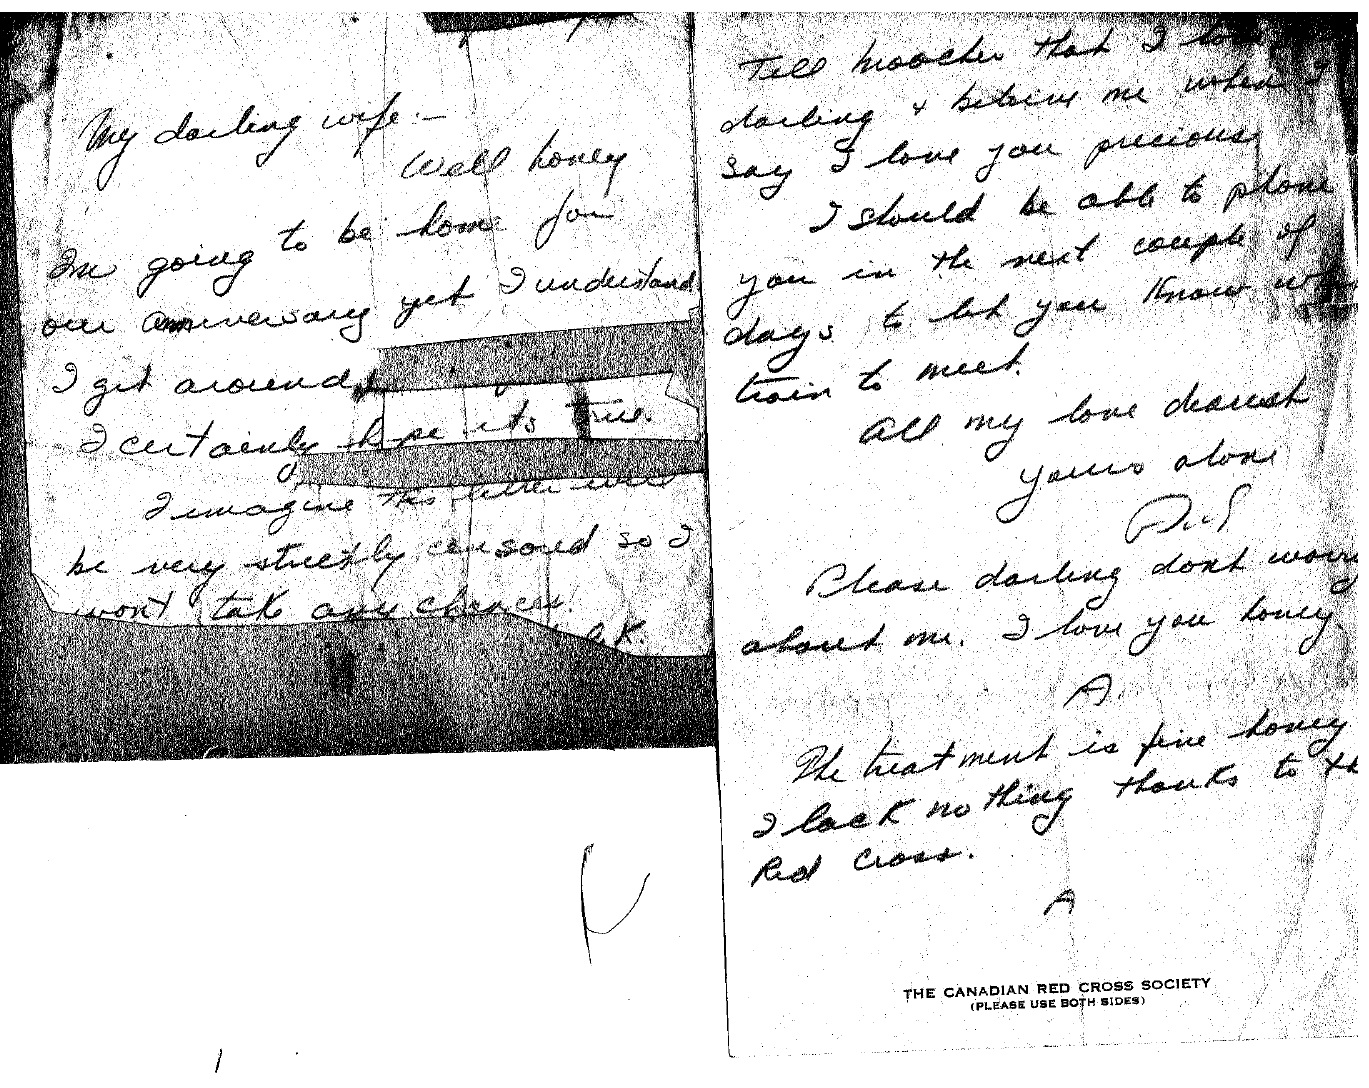 My darling wife:—
Well honey
Im going to be home for
our anniversary yet I understand
I get around
I certainly hope its true.
I imagine this letter will
be very strictly censored so I
wont take any chances!
O.K.
Tell Moocher that I love
darling & believe me when I
say I love you precious
I should be able to phone
you in the next couple of
days to let you know
train to meet.
All my love dearest
yours alone
Please darling dont worry
about me. I love you honey.
A.
The treatment is fine honey
I lack nothing thanks to the
Red Cross.
A
THE CANADIAN RED CROSS SOCIETY
(PLEASE USE BOTH SIDES)